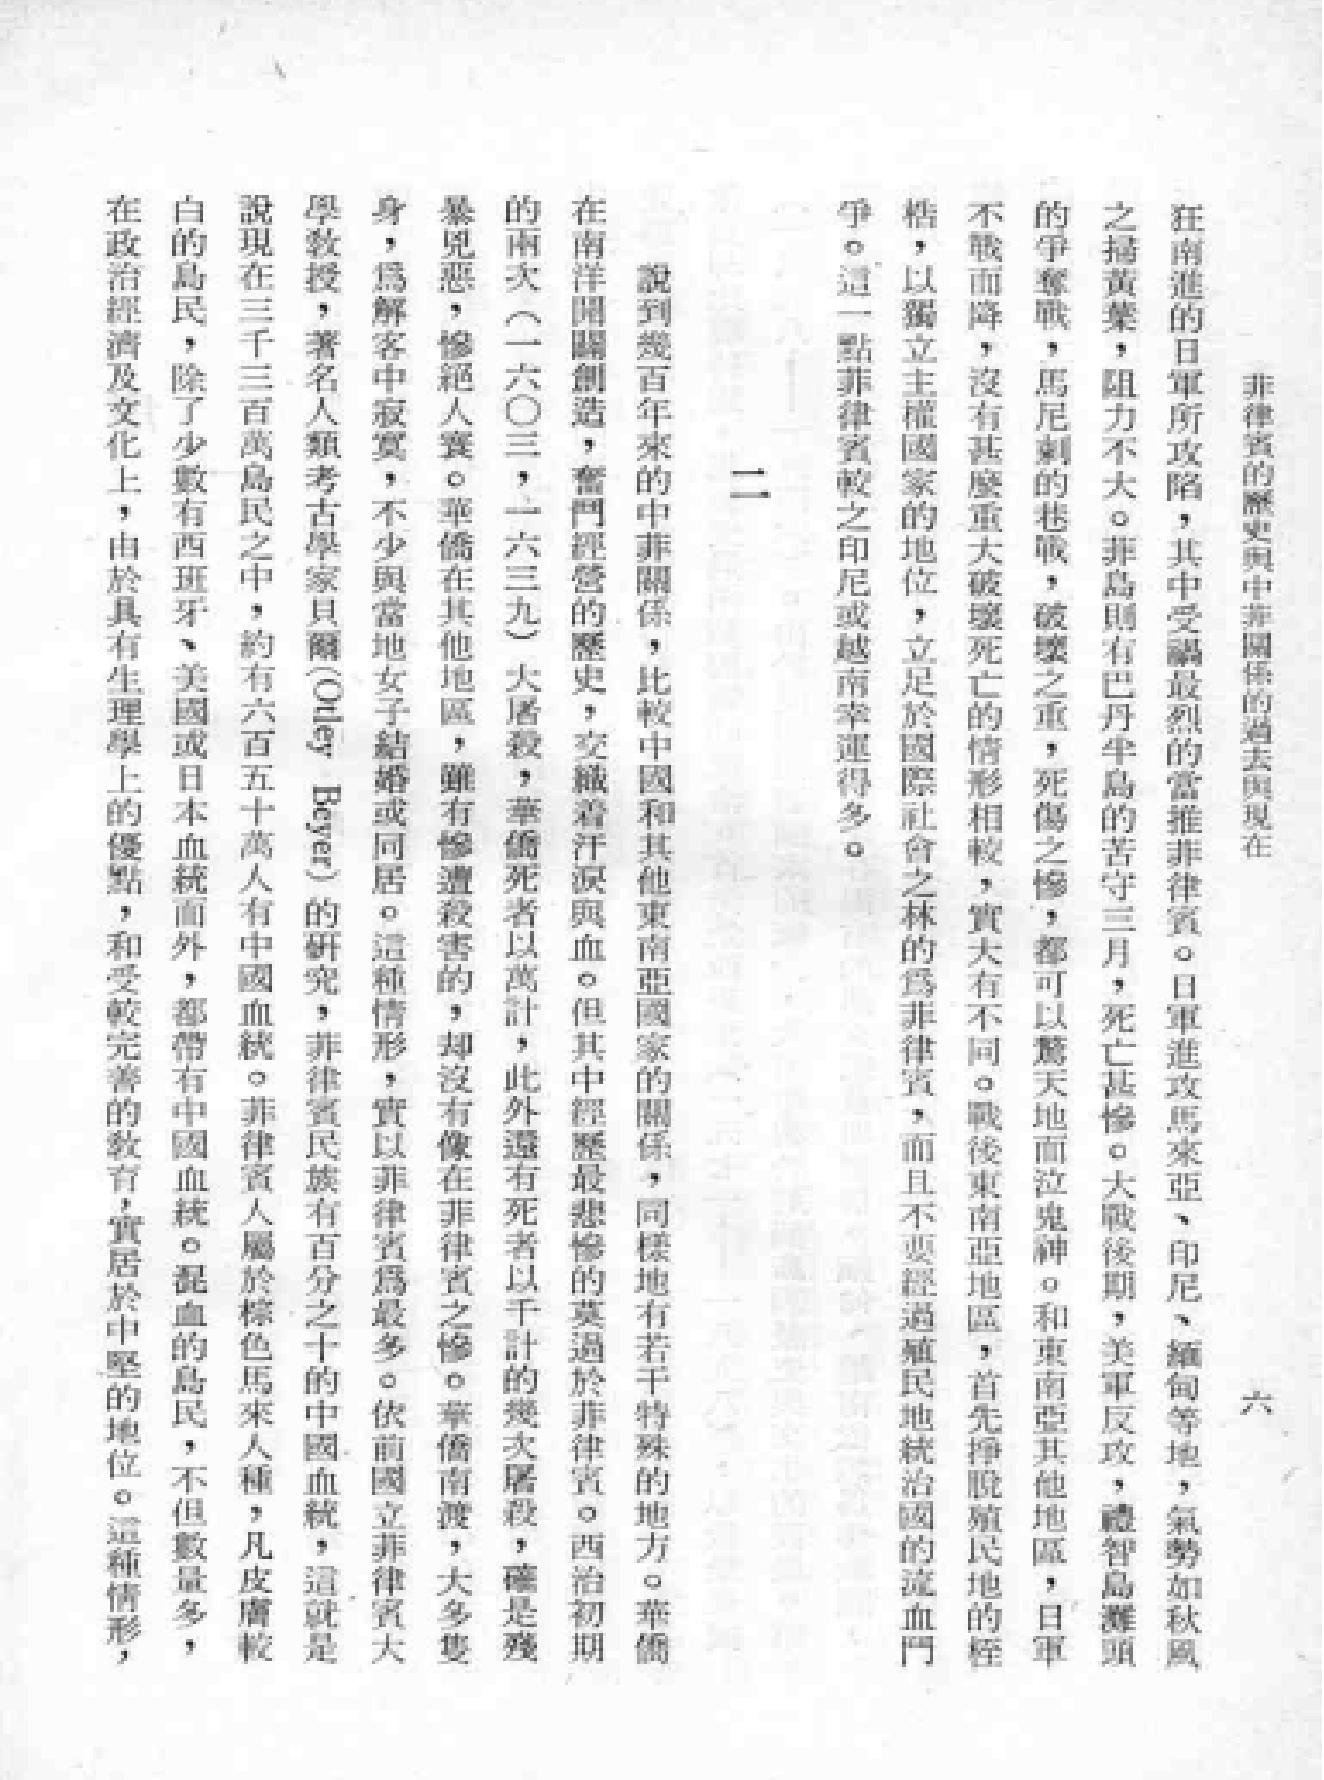 菲律賓的歷史與中菲關係的過去與現在
六
狂南進的日軍所攻陷，其中受禍最烈的當推菲律賓。日軍進攻馬來亞、印尼、緬甸等地，氣勢如秋風
之掃黃葉，阻力不大。菲島則有巴丹半島的苦守三月，死亡甚慘。大戰後期，美軍反攻，禮智島灘頭
的爭奪戰，馬尼剌的巷戰，破壞之重，死傷之慘，都可以驚天地而泣鬼神。和東南亞其他地區，日軍
不戰而降，沒有甚麼重大破壞死亡的情形相較，實大有不同。戰後東南亞地區，首先掙脫殖民地的桎
梏，以獨立主權國家的地位，立足於國際社會之林的爲菲律賓，而且不要經過殖民地統治國的流血鬥
爭。這一點菲律賓較之印尼或越南幸運得多。
二
說到幾百年來的中菲關係，比較中國和其他東南亞國家的關係，同樣地有若干特殊的地方。華僑
在南洋開闢創造，奮鬥經營的歷史，交織着汗淚與血。但其中經歷最悲慘的莫過於菲律賓。西治初期
的兩次（一六〇三，一六三九）大屠殺，華僑死者以萬計，此外還有死者以千計的幾次屠殺，確是殘
暴兇惡，慘絕人寰。華僑在其他地區，雖有慘遭殺害的，却沒有像在菲律賓之慘。華僑南渡，大多隻
身，爲解客中寂寞，不少與當地女子結婚或同居。這種情形，實以菲律賓爲最多。依前國立菲律賓大
學教授，著名人類考古學家貝爾(Otley Beyer)的研究，菲律賓民族有百分之十的中國血統，這就是
說現在三千三百萬島民之中，約有六百五十萬人有中國血統。菲律賓人屬於棕色馬來人種，凡皮膚較
白的島民，除了少數有西班牙、美國或日本血統而外，都帶有中國血統。混血的島民，不但數量多，
在政治經濟及文化上，由於具有生理學上的優點，和受較完善的教育，實居於中堅的地位。這種情形，